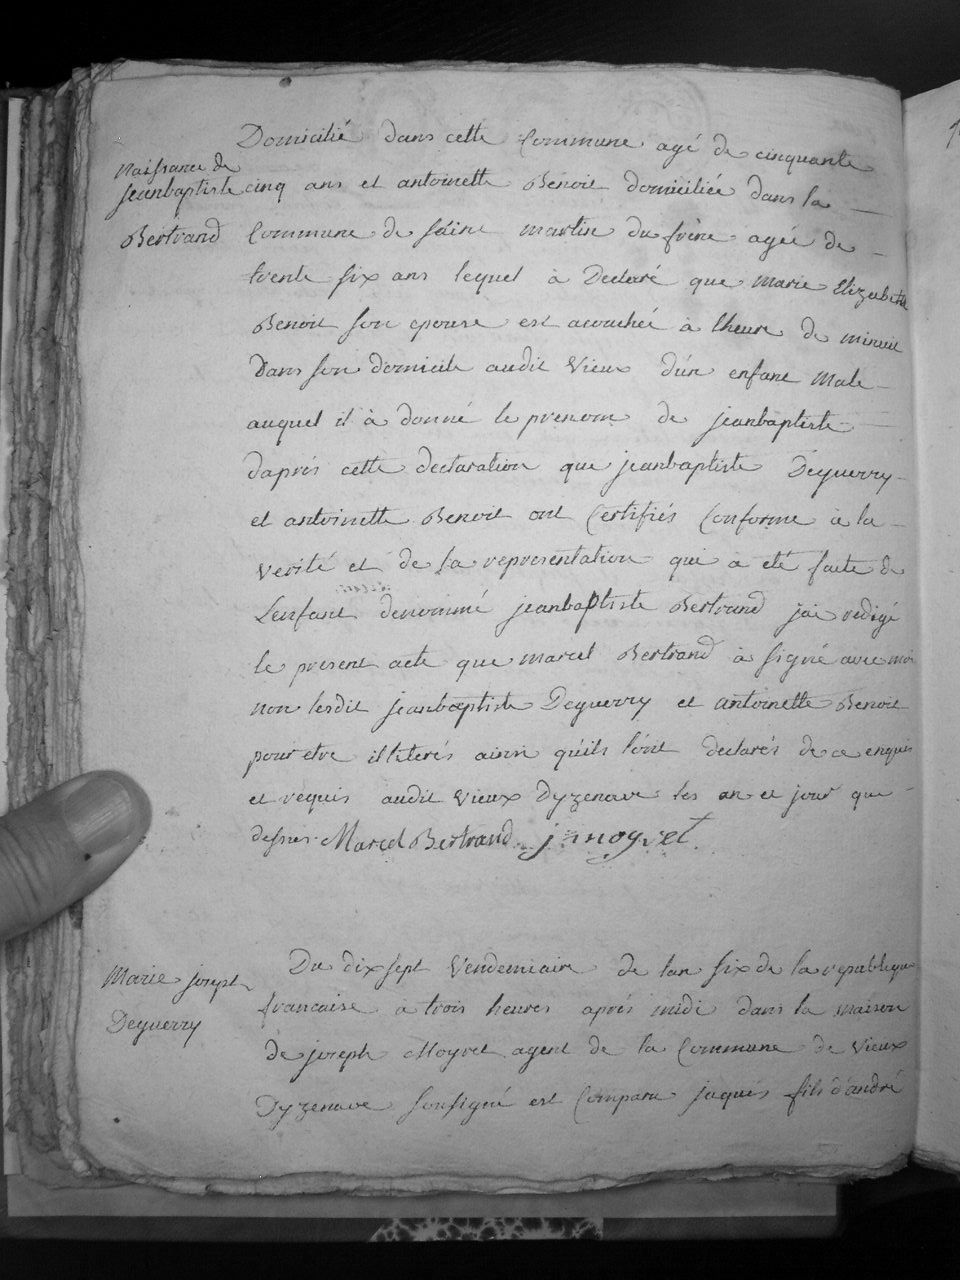 Domicilié dans cette Commune agé de cinquante
Naissance de
jeanbaptiste
Bertrand
cinq ans et antoinette Benoit domiciliée dans la
Commune de saint martin du frêne agée de
trente six ans lequel à Declaré que marie Elizabeth
Benoit son epouse est acouchée à lheure de minuit
Dans son domicile audit Vieux d'un enfant Male
auquel il à donné le prenom de jeanbaptiste
daprés cette declaration que jeanbaptiste Deguerry
et antoinette Benoit ont Certifiés Conforme à la
verité et de la representation qui a eté faite de
Lenfant denommé jeanbaptiste Bertrand jai redigé
le present acte que marcel Bertrand à signé avec moi
non lesdit jeanbaptiste Deguerry et antoinette Benoit
pour etre illiterés ainsi qu'ils lont declarés de ce enquis
et requis audit Vieux Dyzenave les an et jour que
dessus. Marcel Bertrand j moyret
Marie joseph
Deguerry
Du dix sept Vendemiaire de lan six de la republique
francaise à trois heures aprés midi dans la maison
de joseph Moyret agent de la Commune de Vieux
Dyzenave sousigné est Comparu jaques fils d'andré